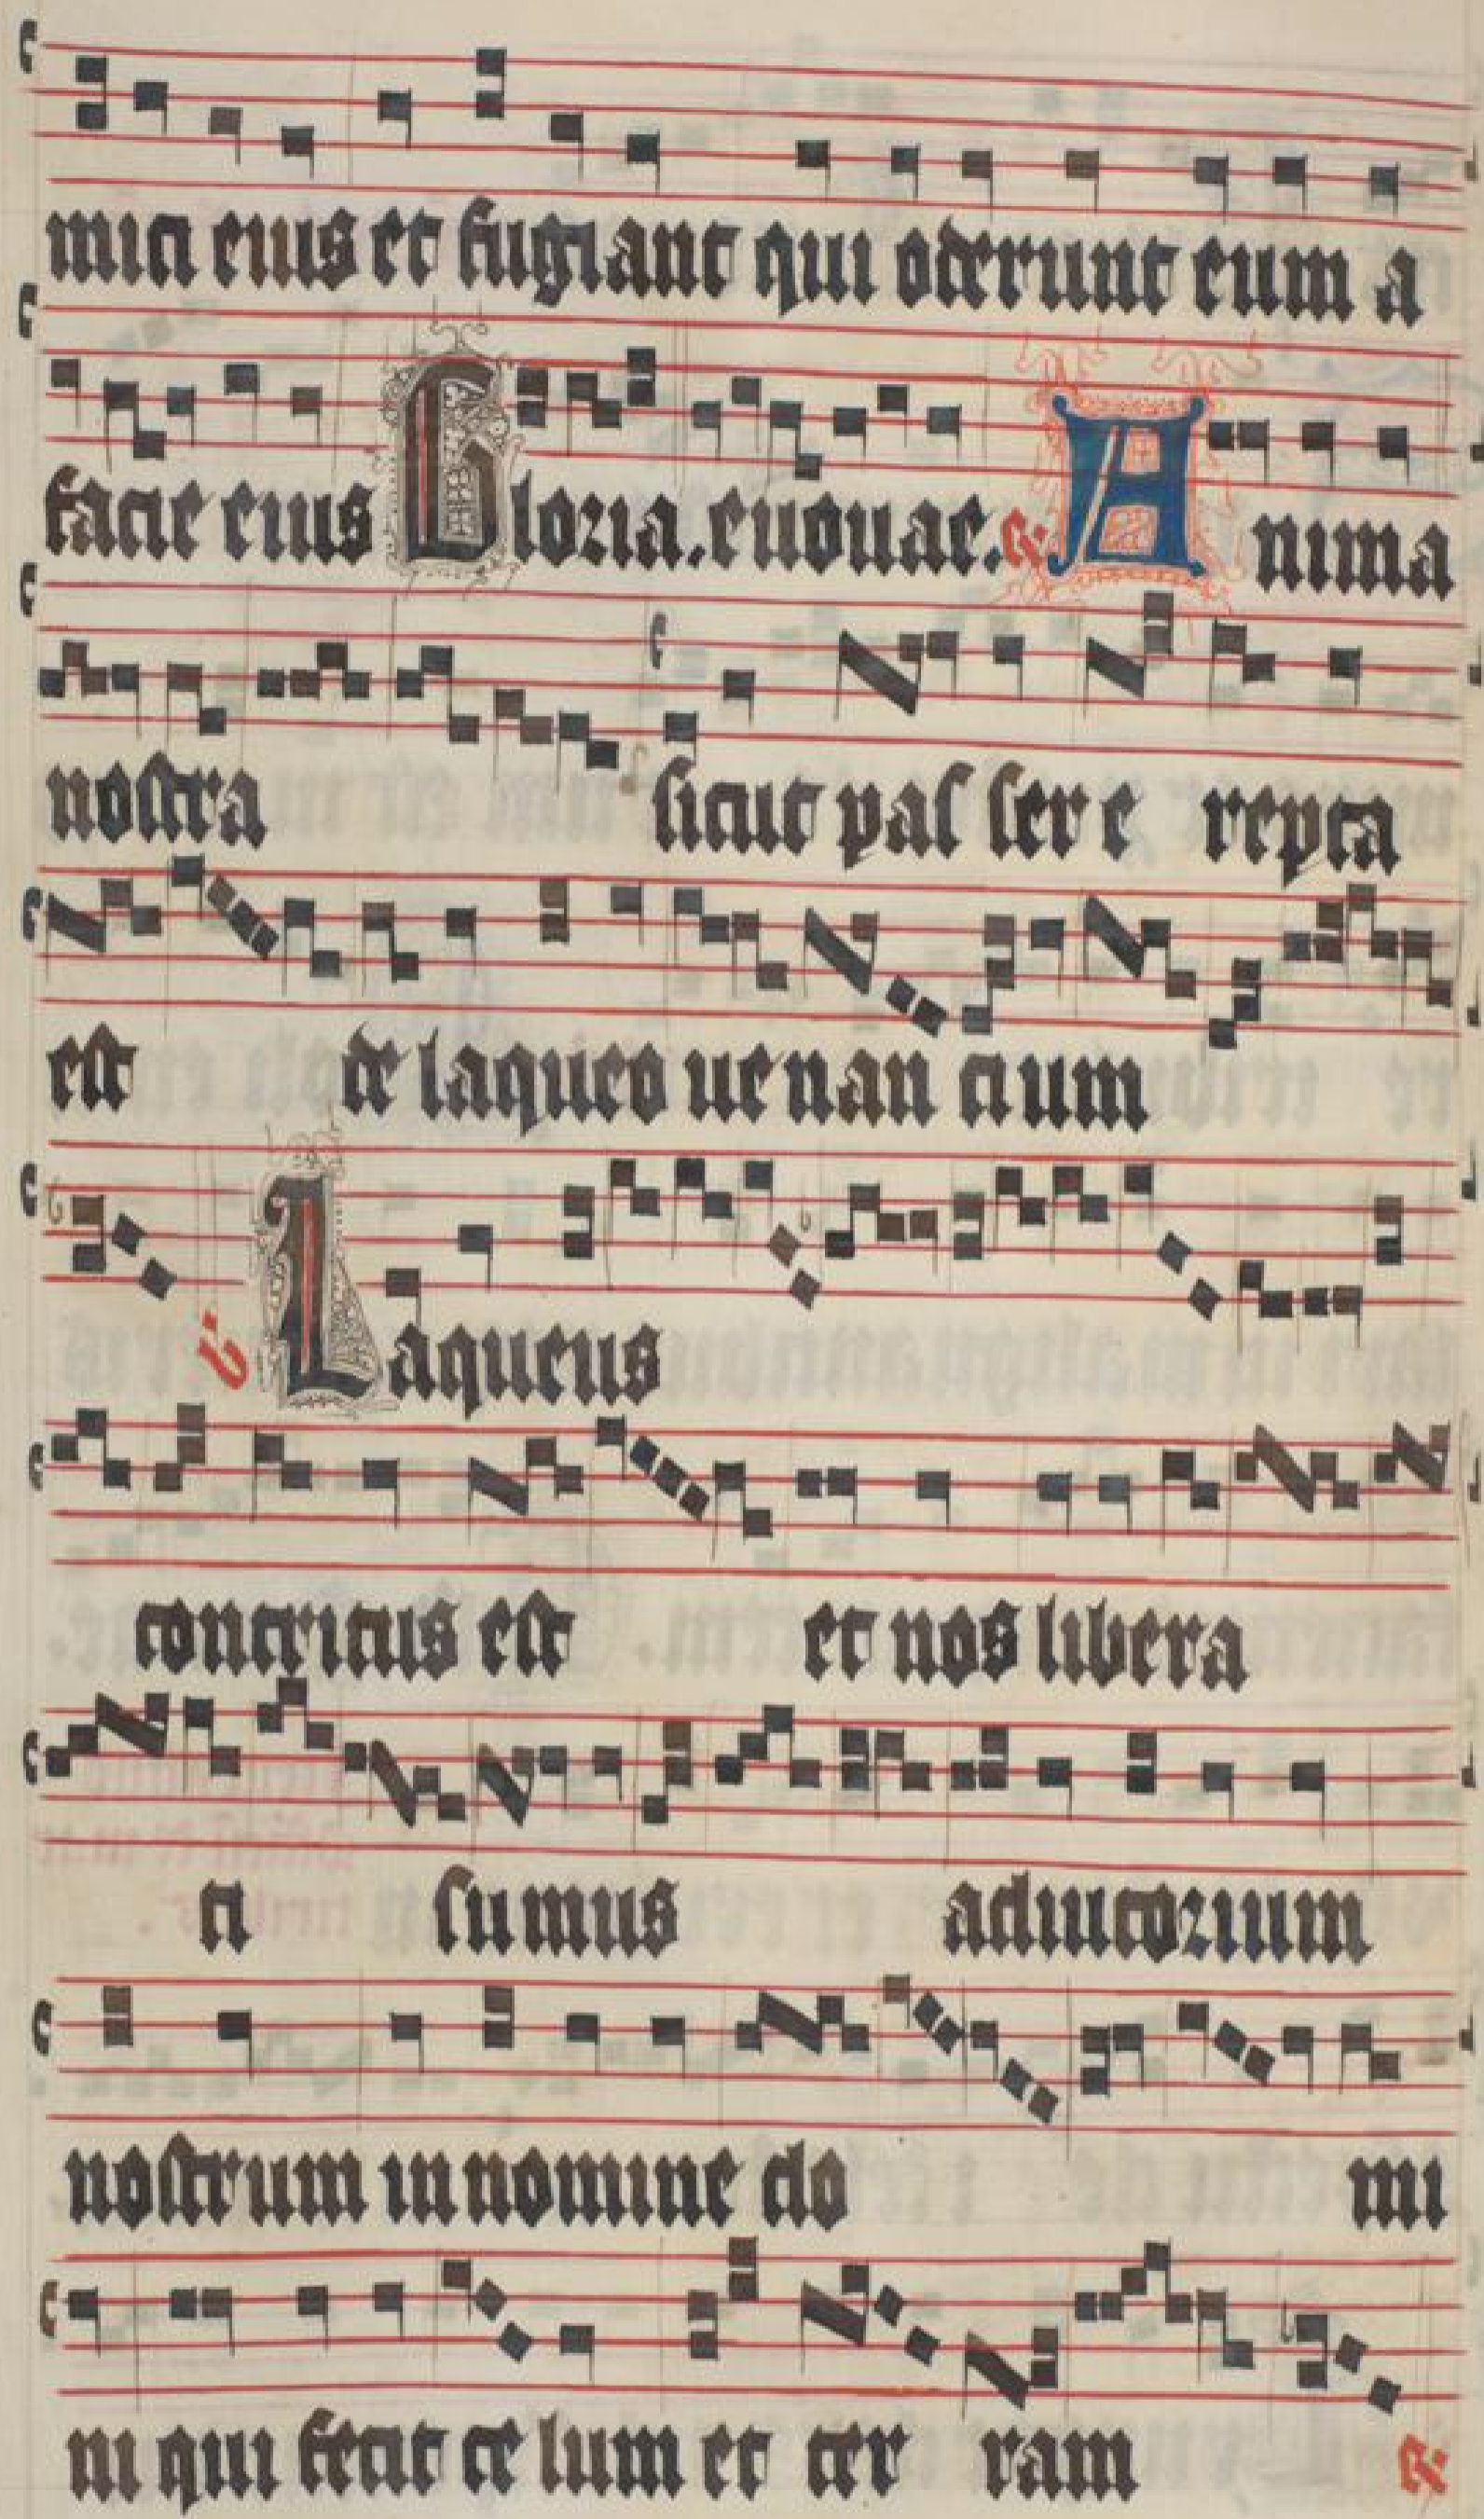 mici eius et fugiant qui oderunt eum a
facie eius Gloria. euouae. R. Anima
nostra sicut pas ser e repta
est de laqueo ue nan cium
V. Laqueus
contritus est et nos libera
ti sumus adiutorium
nostrum in nomine do mi
ni qui fecit ce lum et ter ram R.